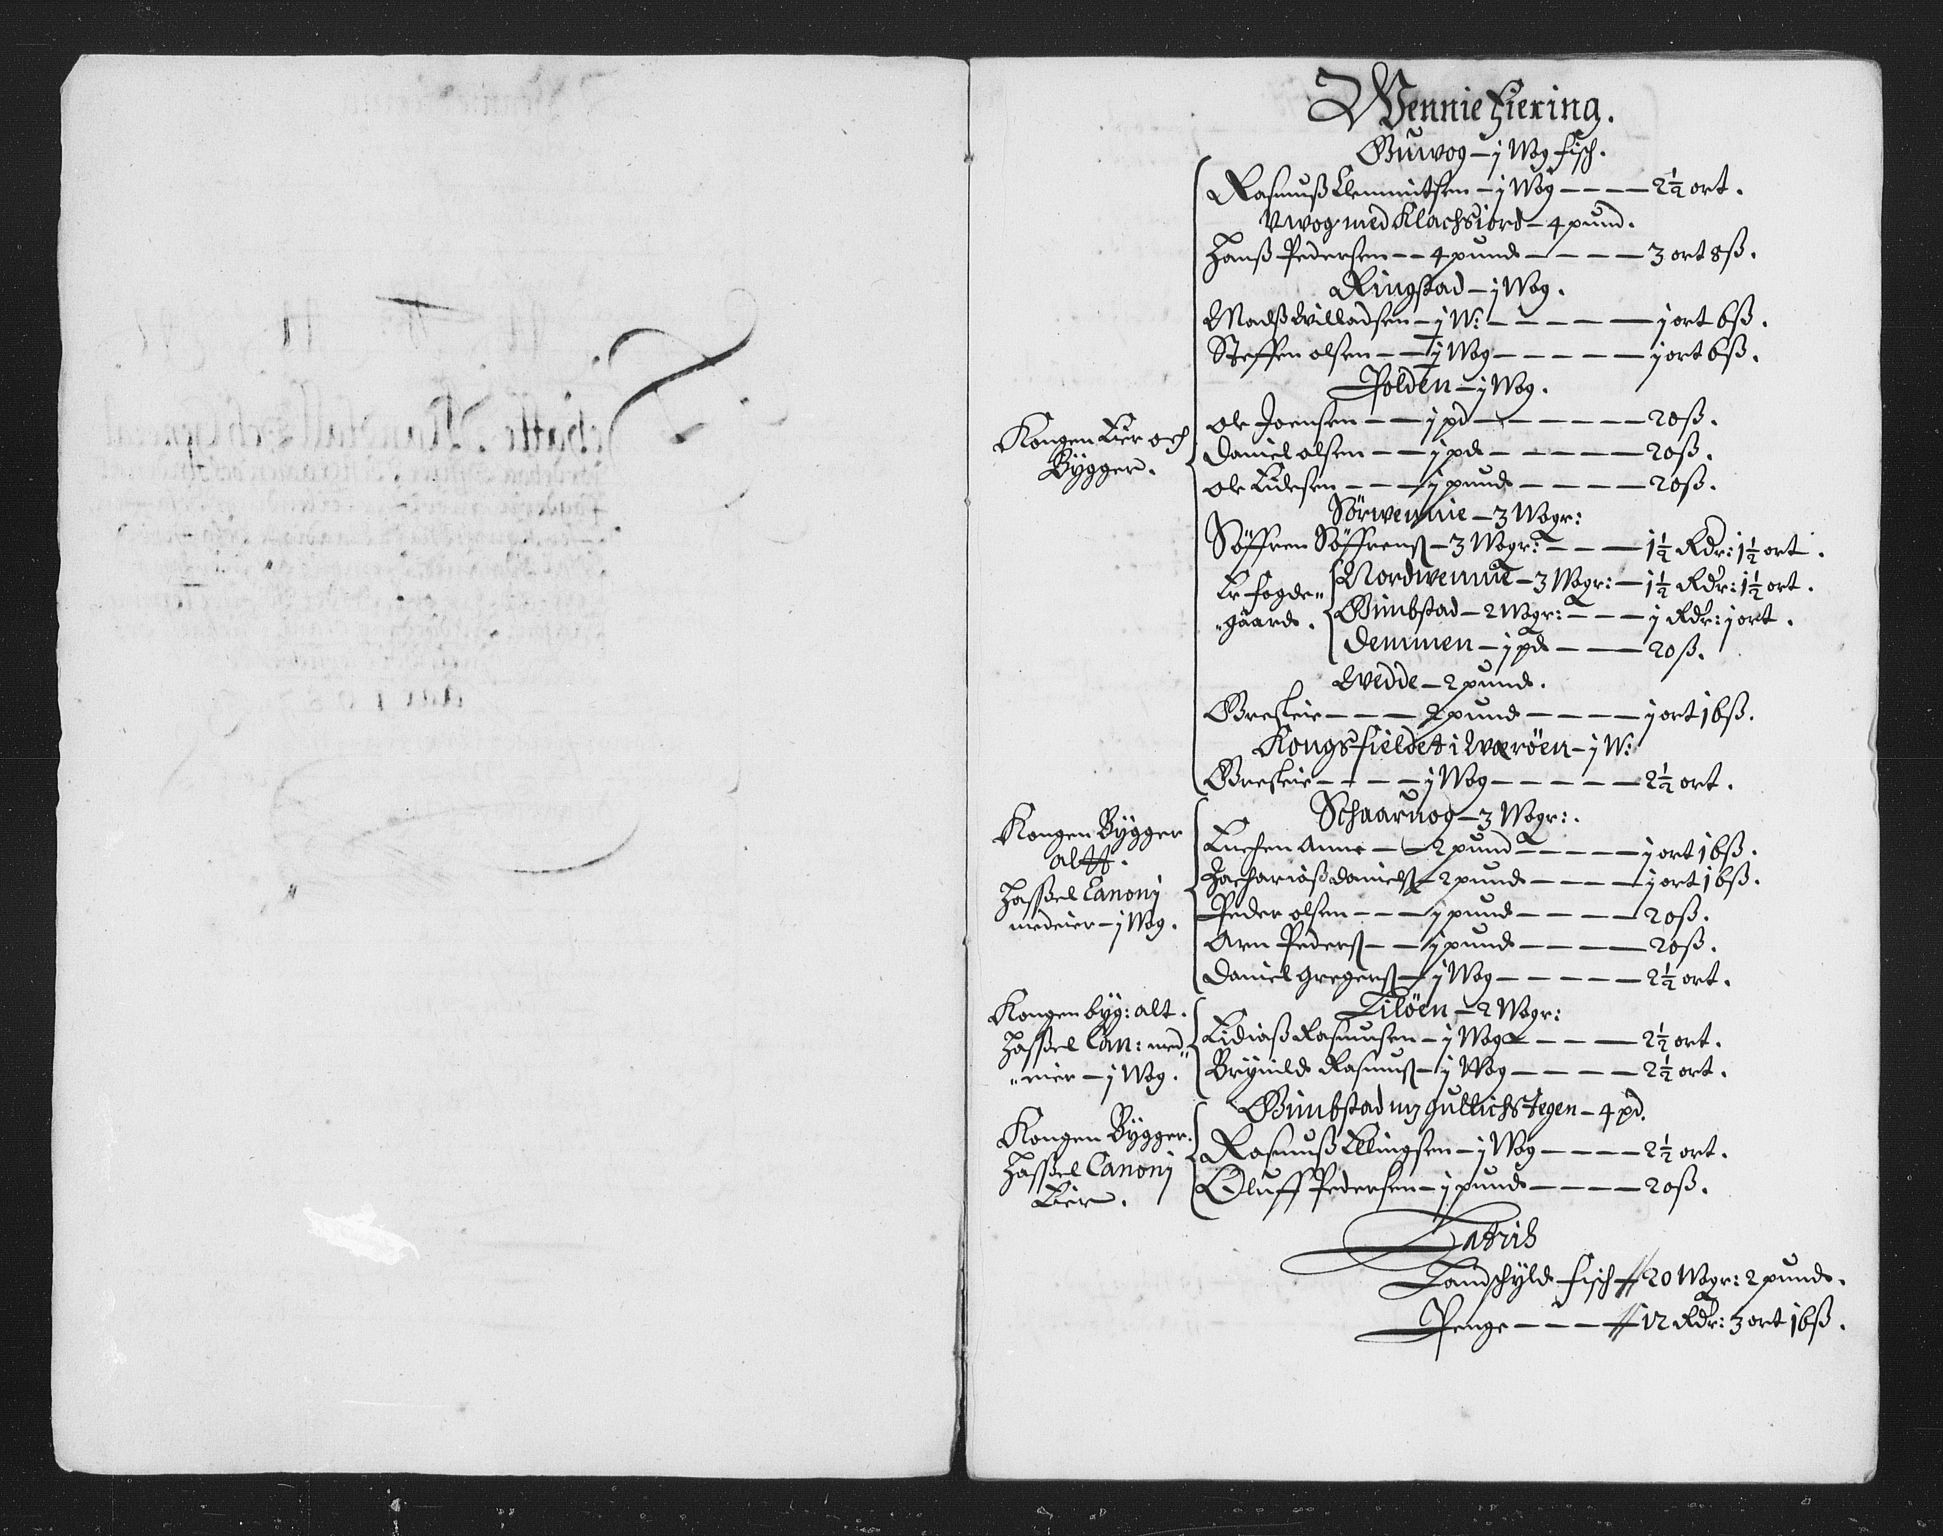 Wennie Fiering.
Guwog – j Wog fisch.
Rasmuß Clemmitsen – j Wog – – – – 2½ ort.
Vwog med Klachsiord – 4 pund.
Hanß Pedersen – – 4 pund – – – – 3 ort 8ß.
Ringstad – j Wog.
Madß Willadsen – ½ W: – – – – – j ort 6ß.
Steffen olsen – – ½ Wog – – – – – j ort 6ß.
Polden – j Wog.
Kongen Eier och
Bÿgger.
ole Joensen – – – j pd – – – – – 20ß.
Daniel olsen – – – j pd – – – – – 20ß.
ole Eidesen – – – j pund – – – – 20ß.
Sörwennie – 3 Wogr:
Söffren Söffrenß – 3 Wogr: – – – 1½ Rdr: 1½ ort.
Er fogde„
„gaard.
Nordwennie – 3 Wogr: – 1½ Rdr: 1½ ort.
Gimbstad – 2 Wogr: – – – j Rdr: j ort.
Demmen – j pd – – – 20ß.
Wedde – 2 pund.
Gresleie – – – – 2 pund – – – – j ort 16ß.
Kongsfieldet i Wæröen – j W:
Gresleie – – – – j Wog – – – – – 2½ ort.
Schaaruog – 3 Wogr:.
Kongen Bÿgger
alt.
Hassel Canonj
medeier – j Wog.
Enchen Anne – – 2 pund – – – – j ort 16ß.
Zachariaß Danielß – 2 pund – – – – j ort 16ß.
Peder olsen – – – j pund – – – – 20ß.
Arn Pederß – – – j pund – – – – 20ß.
Daniel Gregerß – j Wog – – – – – 2½ ort.
Tilöen – 2 Wogr:
Kongen byg: alt.
Hassel Can: med„
„eier – j Wog.
Eidiaß Rasmusen – j Wog – – – – 2½ ort.
Brÿnild Rasmuß – j Wog – – – – 2½ ort.
Gimbstad og Gullichstegen – 4 pd.
Kongen Bÿgger.
Hassel Canonj
Eier.
Rasmuß Ellingsen – j Wog – – – – 2½ ort.
Oluff Pedersen – j pund – – – – 20ß.
Latris
Landschÿld fisch – 20 Wogr: 2 pund.
Penge – – – – 12 Rdr: 3 ort 16ß.